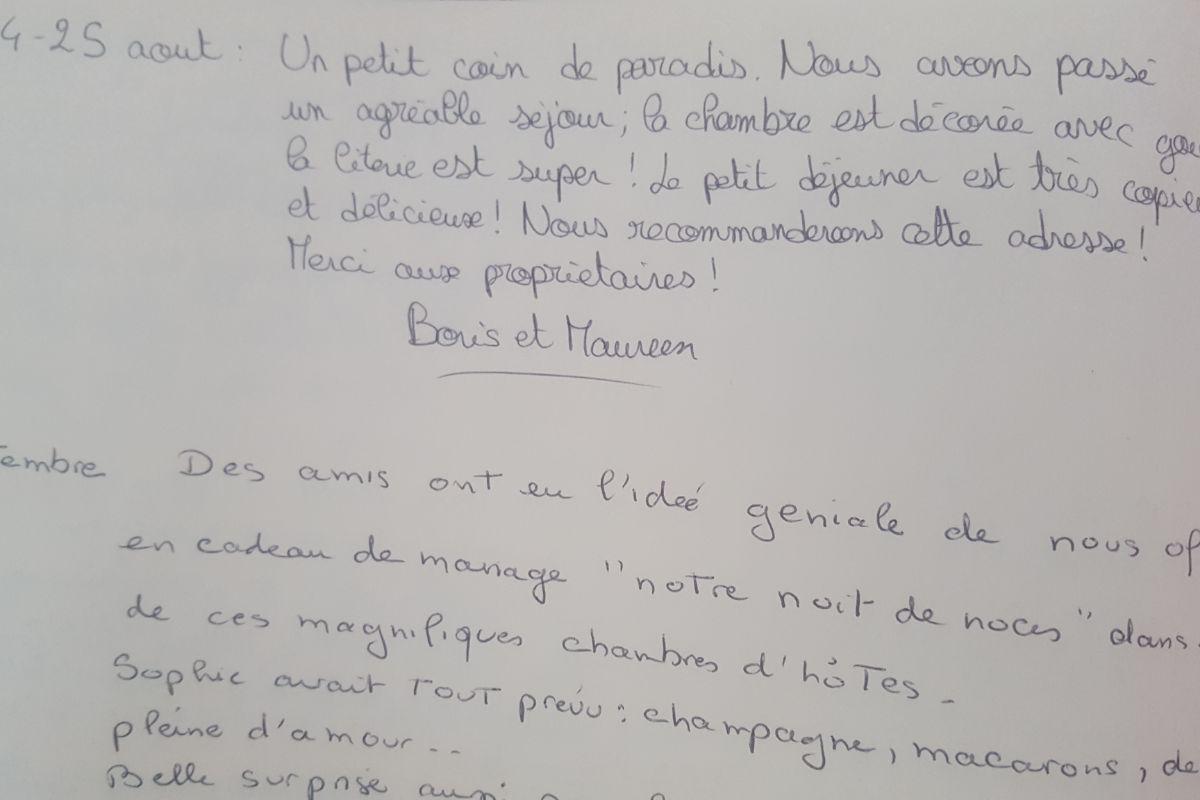 4-25 aout : Un petit coin de paradis. Nous avons passé
un agréable séjour ; la chambre est décorée avec
la literie est super ! Le petit déjeuner est très
et délicieux ! Nous recommanderons cette adresse !
Merci aux propriétaires !
Boris et Maureen
Des amis ont eu l'ideé geniale de nous
en cadeau de mariage "notre nuit de noces" dans
de ces magnifiques chambres d'hôtes.
Sophie avait TOUT prévu : champagne, macarons, de
pleine d'amour..
Belle surprise aussi